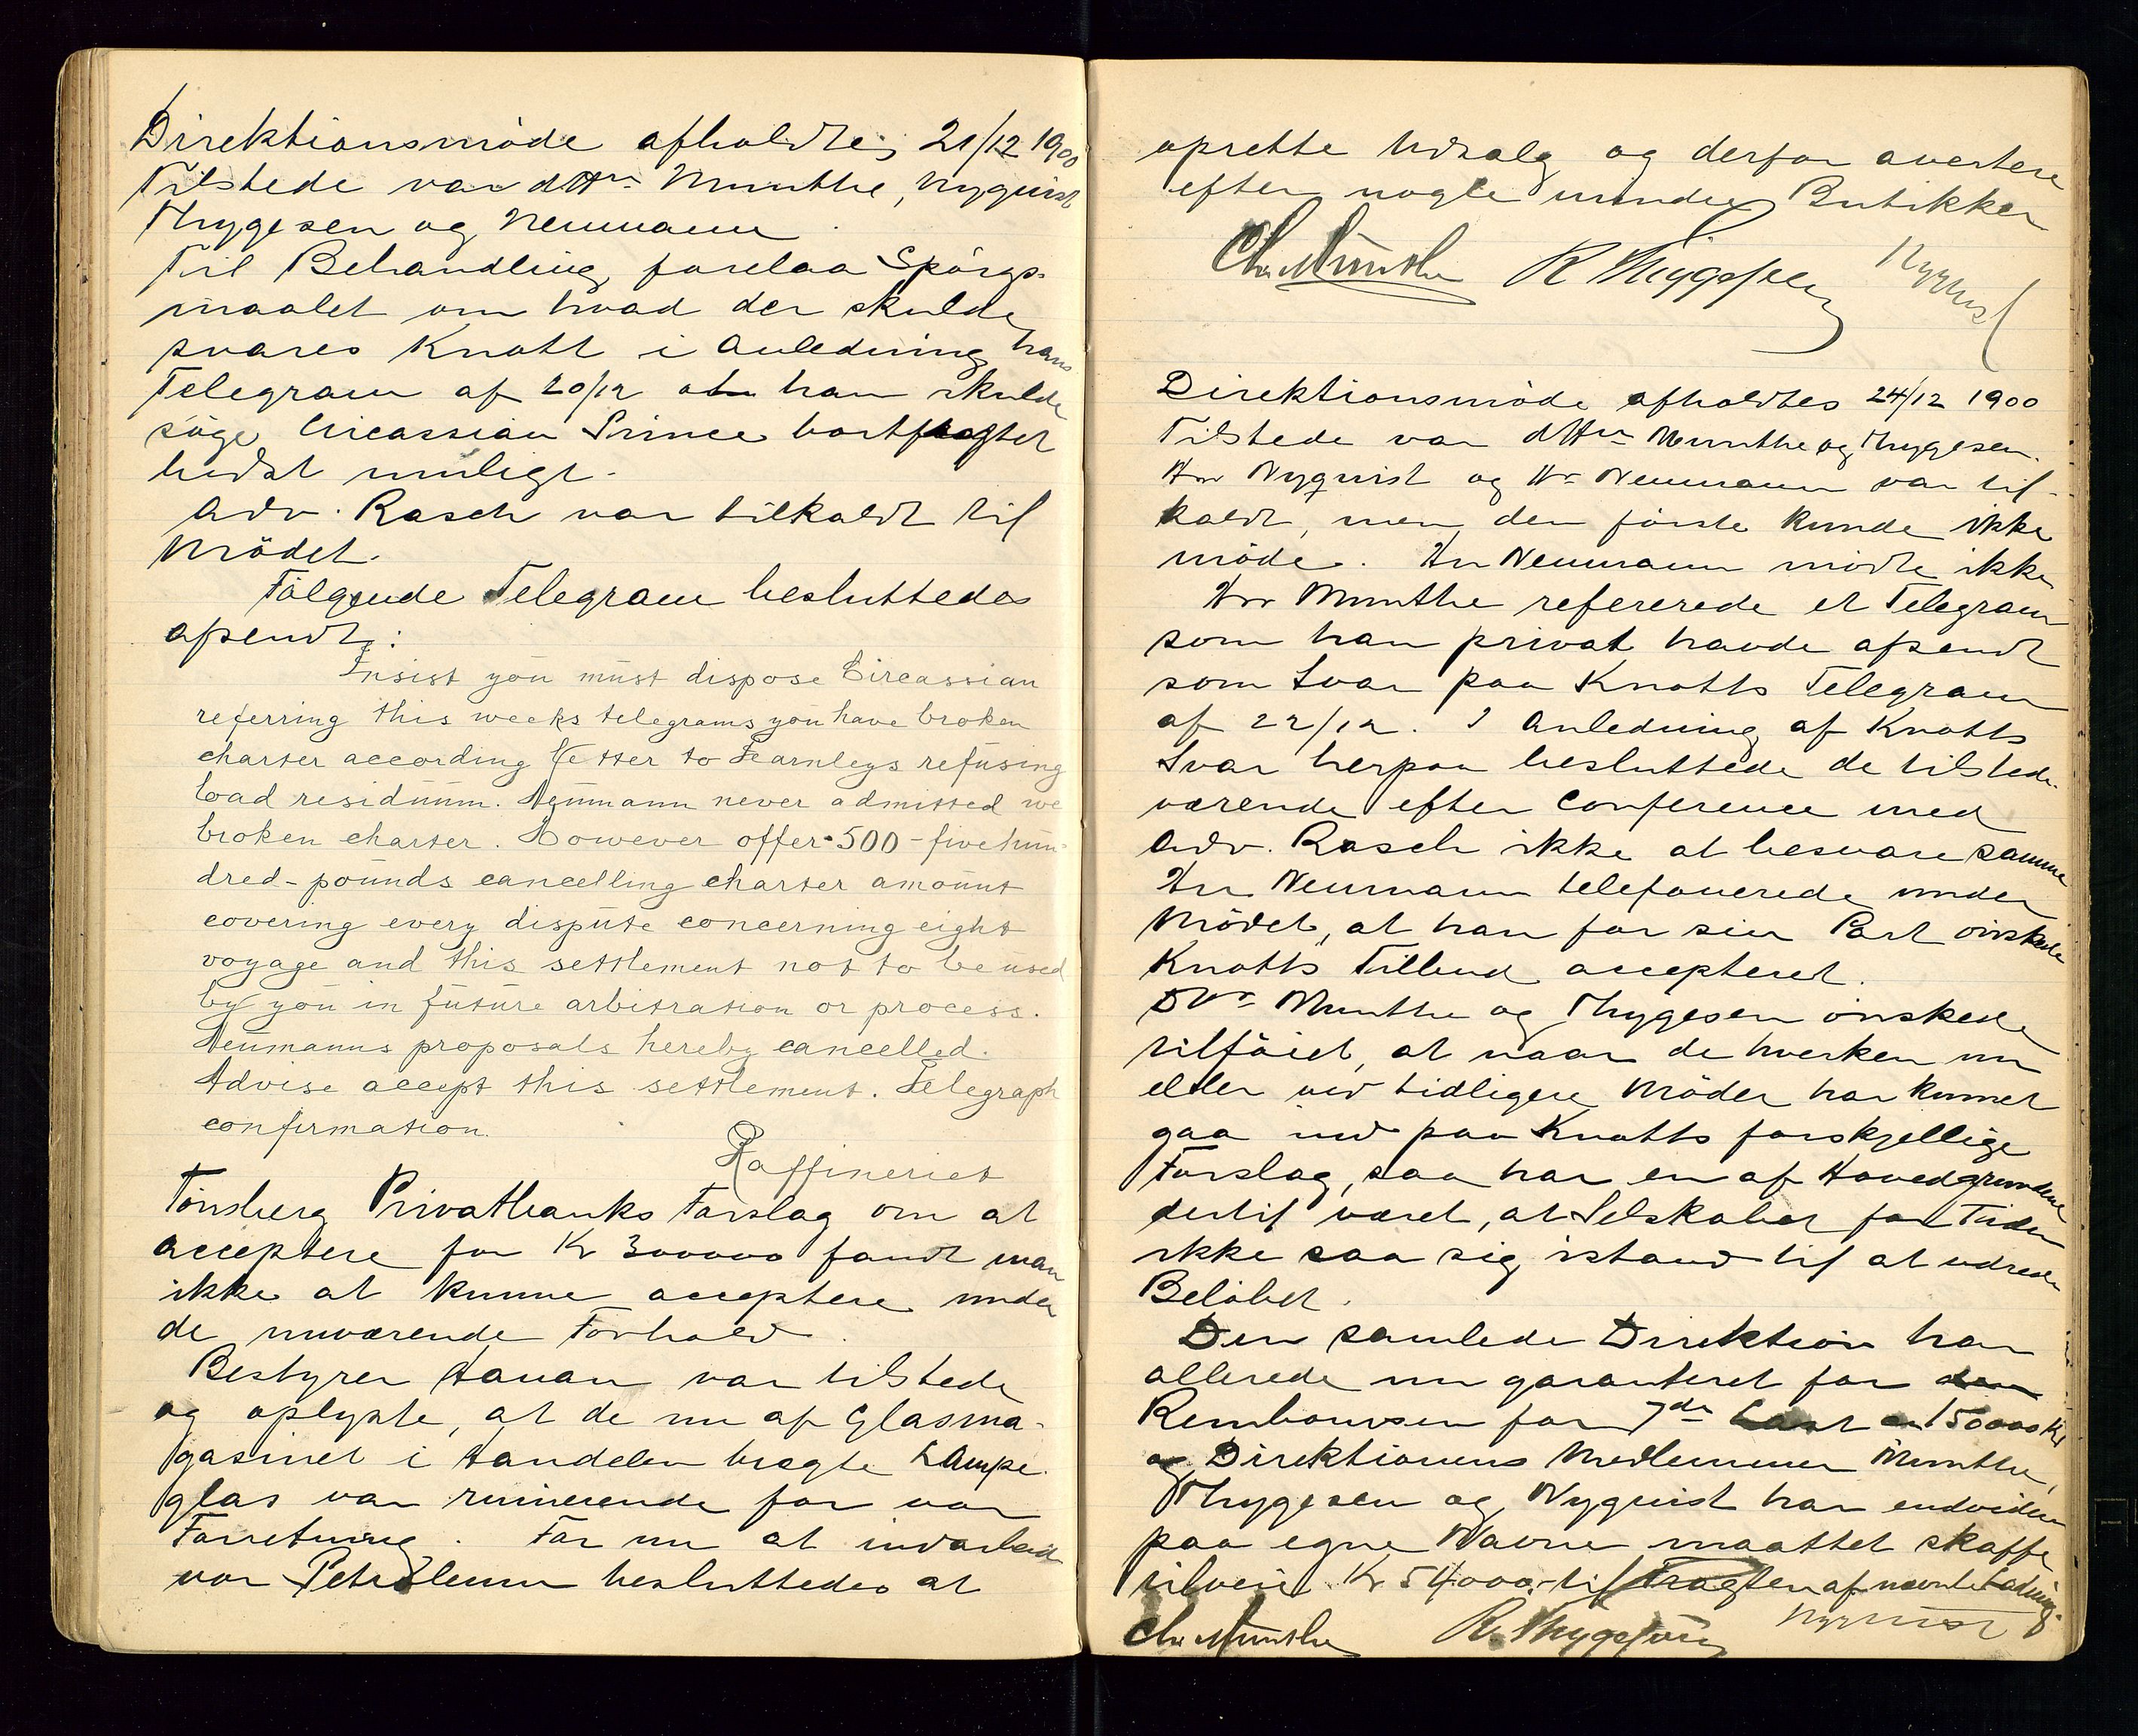 Direktionsmöde afholdtes 21/12 1900
Tilstede var d'Hrr Munthe, Nyquist
Thygesen og Neumann.
Til Behandling forelaa Spörgs-
maalet om hvad der skulde
svares Knott i Anledning hans
Telegram af 20/12 om han skulde
söge Circassian Prince bortfragtet
bedst muligt.
Adv. Rasch var tilkaldt til
Mödet.
Fölgende Telegram besluttedes
afsendt:
Insist you must dispose Circassian
referring this weeks telegrams you have broken
charter according letter to Fearnleys refusing
load residuum. Neumann never admitted we
broken charter. However offer - 500 - five hun-
dred - pounds cancelling charter amount
covering every dispute concerning eight
voyage and this settlement not to be used
by you in future arbitration or process.
Neumanns proposals hereby cancelled.
Advise accept this settlement. Telegraph
confirmation.
Raffineriet
Tönsberg Privatbanks Forslag om at
acceptere for Kr 300000 fandt man
ikke at kunne acceptere under
de nuværende Forhold.
Bestyrer Hanan var tilstede
og oplyste, at de nu af Glasma-
gasinet i Handelen bragte Lampe-
glas var ruinerende for vor
Forretning. For nu at indarbeide
vor Petroleum besluttedes at
oprette Udsalg og derfor avertere
efter nogle mindre Butikker
Chr. Munthe R Thygesen Nyquist
Direktionsmöde afholdtes 24/12 1900
Tilstede var d'Hrr Munthe og Thygesen.
Hrr Nyquist og Hr Neumann var til-
kaldt, men den förste kunde ikke
möde. Hr Neumann mödte ikke
Hrr Munthe refererede et Telegram
som han privat havde afsendt
som Svar paa Knotts Telegram
af 22/12. I Anledning af Knotts
Svar herpaa besluttede de tilstede-
værende efter Conference med
Adv. Rasch ikke at besvare samme
Hr Neumann telefonerede under
Mödet, at han for sin Part önskede
Knotts Tilbud accepteret.
D'Hrr Munthe og Thygesen önskede
tilföiet, at naar de hverken nu
eller ved tidligere Möder har kunnet
gaa ind paa Knotts forskjellige
Forslag, saa har en af Hovedgrundene
dertil været, at Selskabet for Tiden
ikke saa sig istand til at udrede
Belöbet.
Den samlede Direktion har
allerede nu garanteret for den
Remboursen for 7de Last 150000 Kr
og Direktionens Medlemmer Munthe,
Thygesen og Nyquist har endvidere
paa egne Navne maattet skaffe
tilveie Kr 54000,- til Fragten af nævnte Ladning.
Chr. Munthe R. Thygesen Nyquist